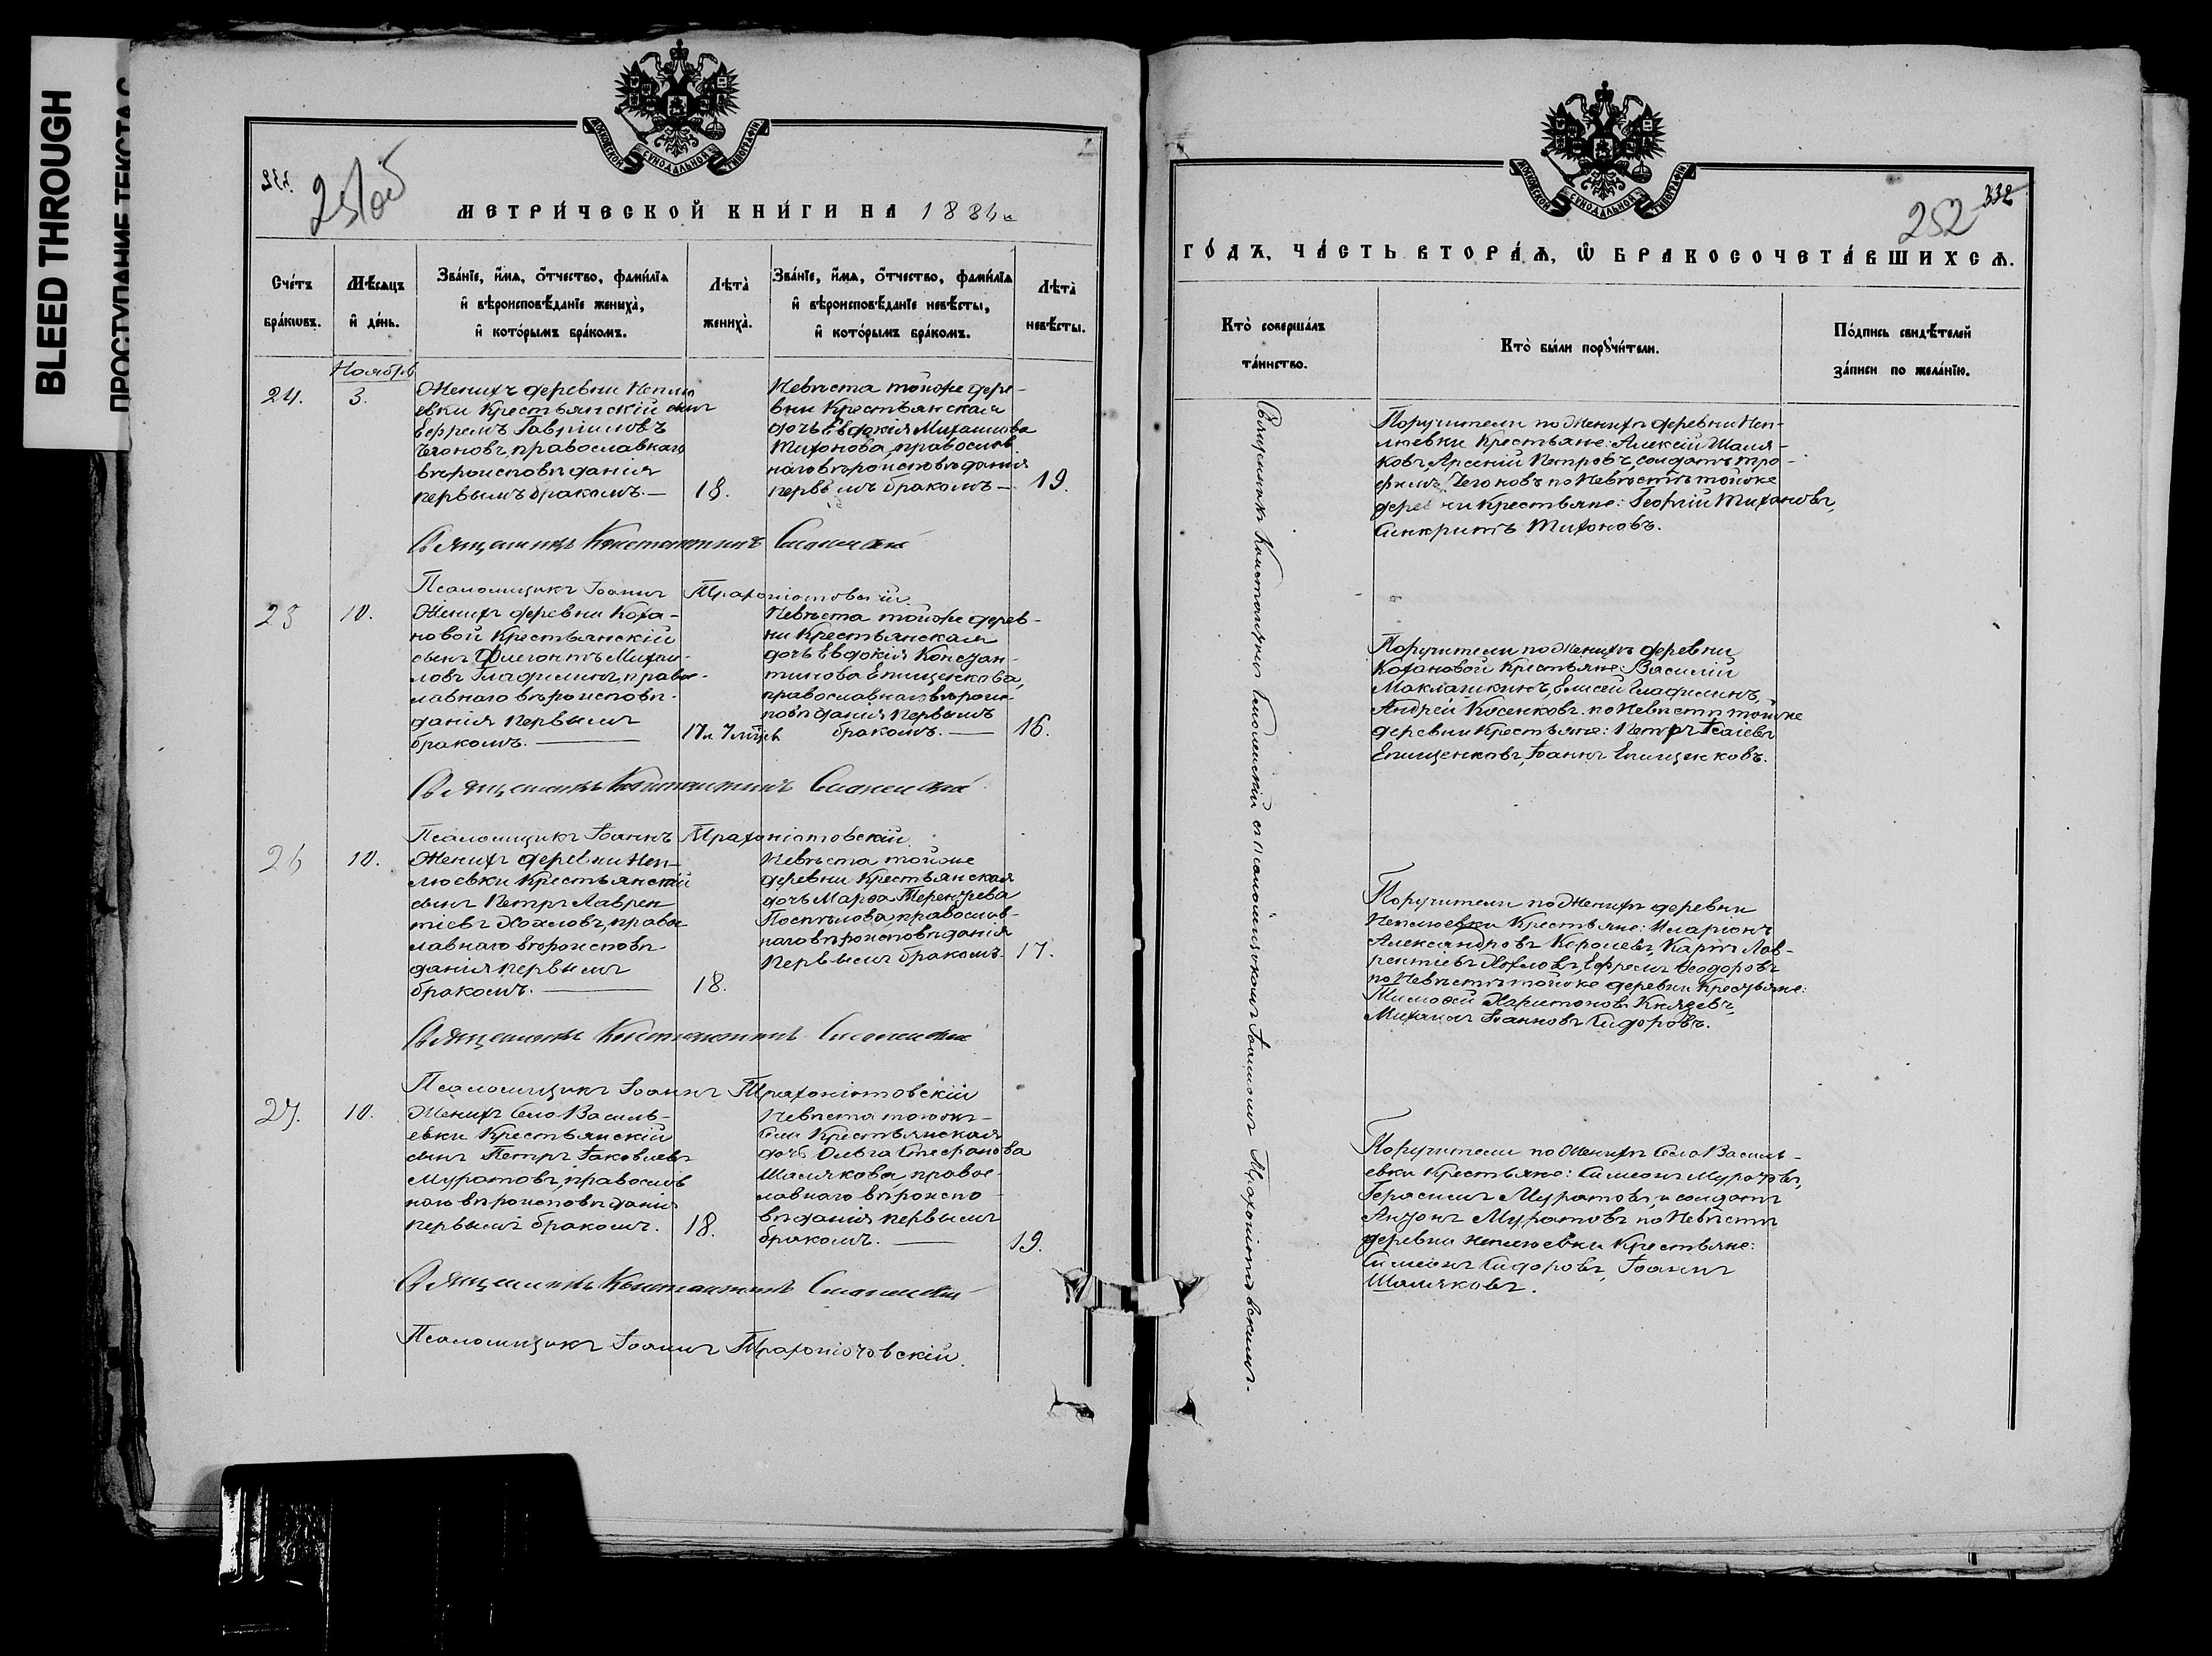 BLEED THROUGH
ПРОСТУПАНИЕ ТЕКСТА С
МОСКОВСКОЙ СѴНОДАЛЬНОЙ ТИПОГРАФІИ
251об
МЕТРИ́ЧЕСКОЙ КНИ́ГИ НА 1886 й
Сче́тъ бра́кѡвъ.
Мѣ́сяцъ и҆ де́нь.
Зва́нїе, и҆́мѧ, ѻ҆́тчество, фами́лїѧ и҆ вѣроисповѣ́данїе жениха̀, и҆ кото́рымъ бра́комъ.
Лѣта̀ жениха̀.
Зва́нїе, и҆́мѧ, ѻ҆́тчество, фами́лїѧ и҆ вѣроисповѣ́данїе невѣ́сты, и҆ кото́рымъ бра́комъ.
Лѣта̀ невѣ́сты.
Ноябрь
24.
3.
Женихъ деревни Неплю
евки Крестьянскій сынъ
Ефремъ Гавріиловъ
Чегоновъ, православнаго
вѣроисповѣданія
первымъ бракомъ.—
18.
Невѣста тойже дере-
вни Крестьянская
дочь Евдокія Михаилова
Тихонова, православ
наго вѣроисповѣданія
первымъ бракомъ—
19.
Священникъ Константинъ Смоленскій
Псаломщикъ Іоаннъ Трахоніотовскій.
25
10.
Женихъ деревни Коха-
новой Крестьянскій
сынъ Флегонтъ Михаи-
ловъ Глафилинъ, право-
лавнаго вѣроисповѣ-
данія первымъ
бракомъ. —
17 л. 7 мѣсяцевъ
Невѣста тойже дерев-
ни Крестьянская
дочь Евдокія Констан-
тинова Епищенкова,
православнаго вѣроис-
повѣданія первымъ
бракомъ. —
16.
Священникъ Константинъ Смоленскій
Псаломщикъ Іоаннъ Трахоніотовскій.
26
10.
Женихъ деревни Неп-
люевки Крестьянскій
сынъ Петръ Лаврен
тіевъ Хохловъ, правос
лавнаго вѣроисповѣ-
данія первымъ
бракомъ. —
18.
Невѣста тойже
деревни Крестьянская
дочь Марѳа Терентьева
Поспѣлова, православ-
наго вѣроисповѣданія
первымъ бракомъ.
17.
Священникъ Константинъ Смоленскій
Псаломщикъ Іоаннъ Трахоніотовскій
27.
10.
Женихъ Села Василь-
евки Крестьянскій
сынъ Петръ Іаковлевъ
Муратовъ, православ
наго вѣроисповѣданія
первымъ бракомъ.
18.
Невѣста тогожъ-
Села Крестьянская
дочь Ольга Стефанова
Шалякова, правос-
лавнаго вѣроиспо-
вѣданія первымъ
бракомъ. —
19.
Священникъ Константинъ Смоленскій
Псаломщикъ Іоаннъ Трахоніотовскій.
МОСКОВСКОЙ СѴНОДАЛЬНОЙ ТИПОГРАФІИ
252
332
ГО́ДЪ, ЧА́СТЬ ВТОРА́Ѧ, Ѡ҆ БРАКОСОЧЕТА́ВШИХСѦ.
Кто̀ соверша́лъ та́инство.
Кто̀ бы́ли порꙋчи́тели.
По́дпись свидѣ́телей за́писи по жела́нїю.
Священникъ Константинъ Смоленскій съ псаломщикомъ Іоанномъ Трахоніотовскимъ.
Поручители по Женихѣ деревни Неп-
люевки Крестьяне: Алексій Шаля-
ковъ, Арсеній Петровъ, солдатъ Тро-
фимъ Чегоновъ по Невѣстѣ тойже
деревни Крестьяне: Георгій Тихоновъ,
Асинкритъ Тихоновъ.
Поручители по Женихѣ деревни
Кохановой Крестьяне: Василій
Маклашкинъ, Елисей Глафилинъ,
Андрей Косенковъ. по Невѣстѣ тойже
деревни Крестьяне: Петръ Исаіевъ
Епищенковъ, Іоаннъ Епищенковъ.
Поручители по Женихѣ деревни
Неплюевки Крестьяне: Иларіонъ
Александровъ Королевъ, Карпъ Лав-
рентіевъ Хохловъ, Ефремъ Ѳеодоровъ
по Невѣстѣ тойже деревни Крестьяне:
Тимоѳей Харитоновъ Князевъ,
Михаилъ Іоанновъ Сидоровъ.
Поручители по Женихѣ Села Василь-
евки Крестьяне: Симеонъ Муратовъ,
Герасимъ Муратовъ, и солдатъ
Антонъ Муратовъ по Невѣстѣ
деревни неплюевки Крестьяне:
Симеонъ Сидоровъ, Іоаннъ
Шаляковъ.